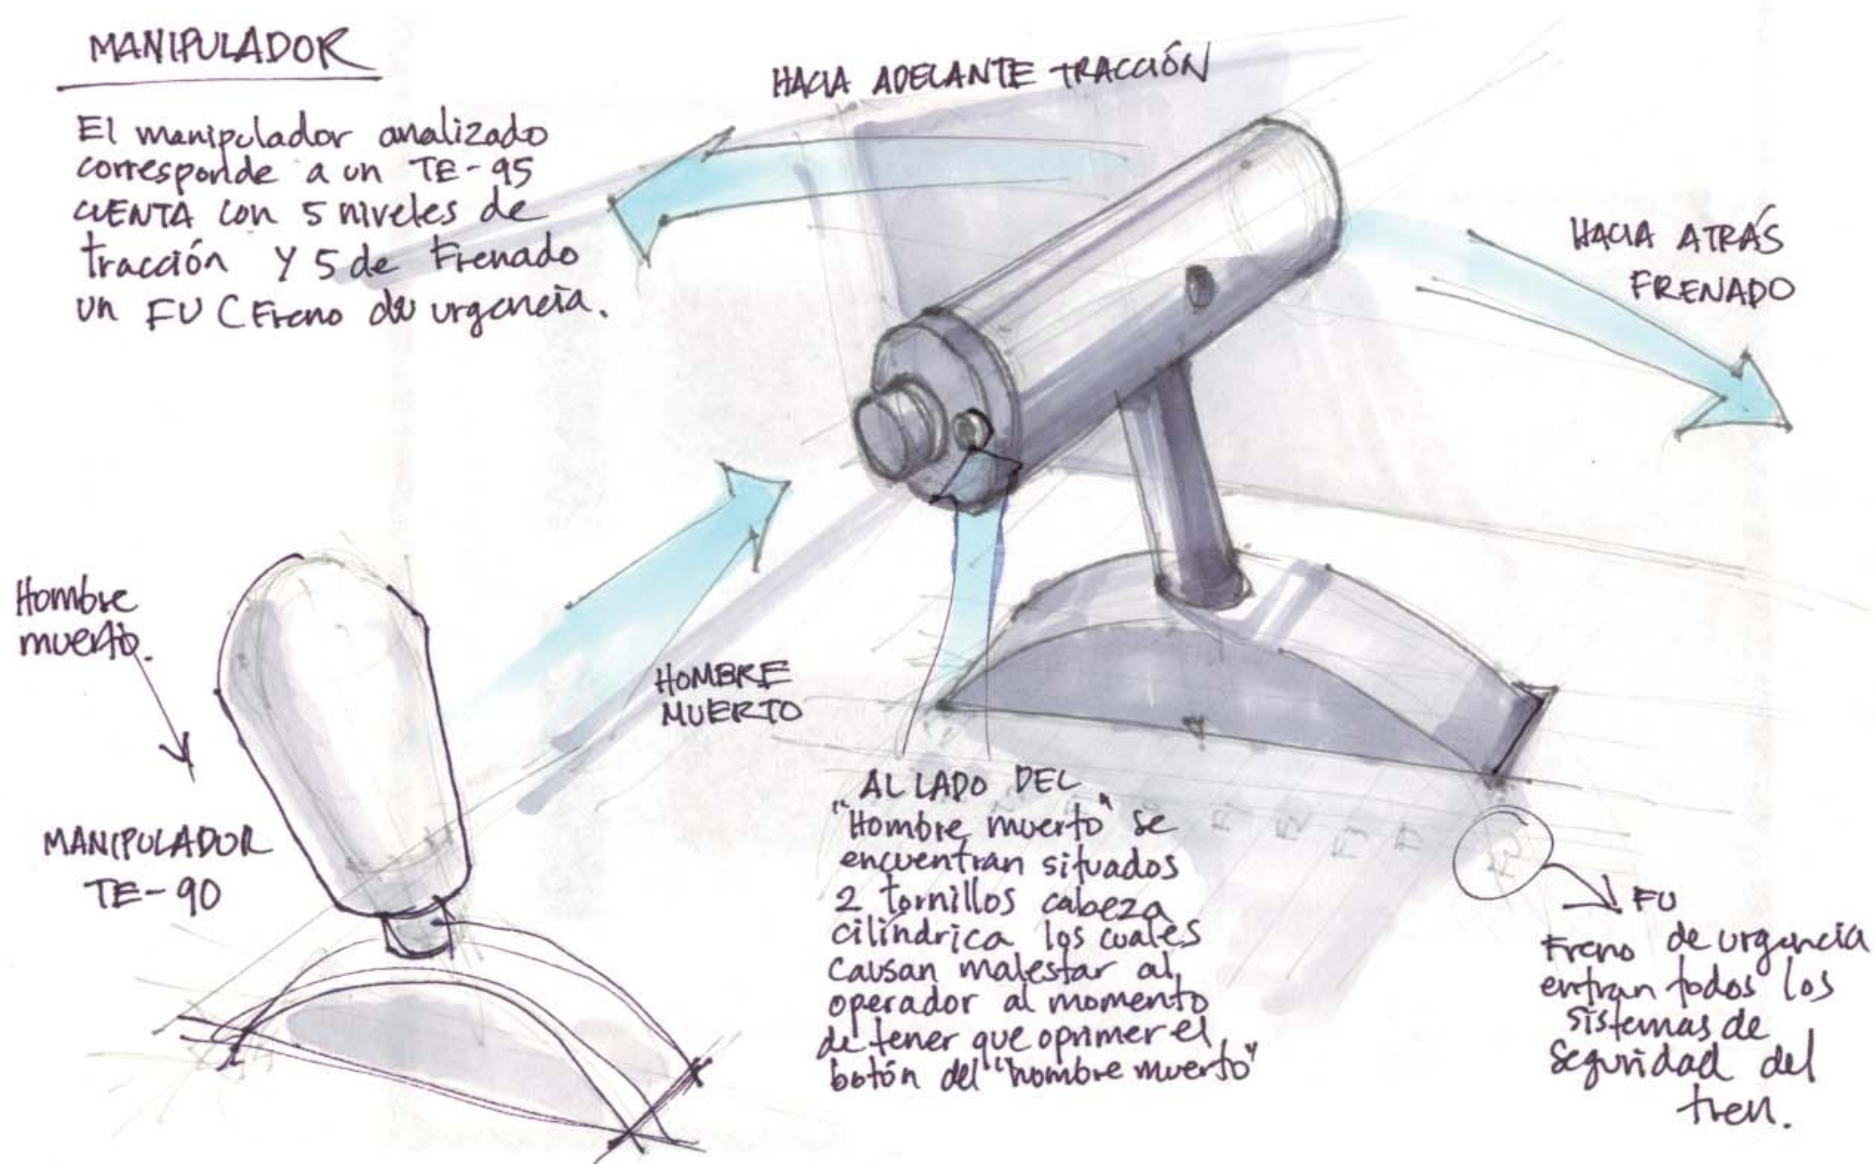 MANIPULADOR
El manipulador analizado
corresponde a un TE-95
CUENTA con 5 niveles de
tracción Y 5 de Frenado
un FU (Freno de urgencia.
HACIA ADELANTE TRACCIÓN
HACIA ATRÁS
FRENADO
Hombre
muerto.
HOMBRE
MUERTO
MANIPULADOR
TE-90
AL LADO DEL
"Hombre muerto" se
encuentran situados
2 tornillos cabeza
cilíndrica los cuales
causan malestar al
operador al momento
de tener que oprimer el
botón del "hombre muerto"
F1 F2 F3
FU
FU
Freno de urgencia
entran todos los
sistemas de
seguridad del
tren.